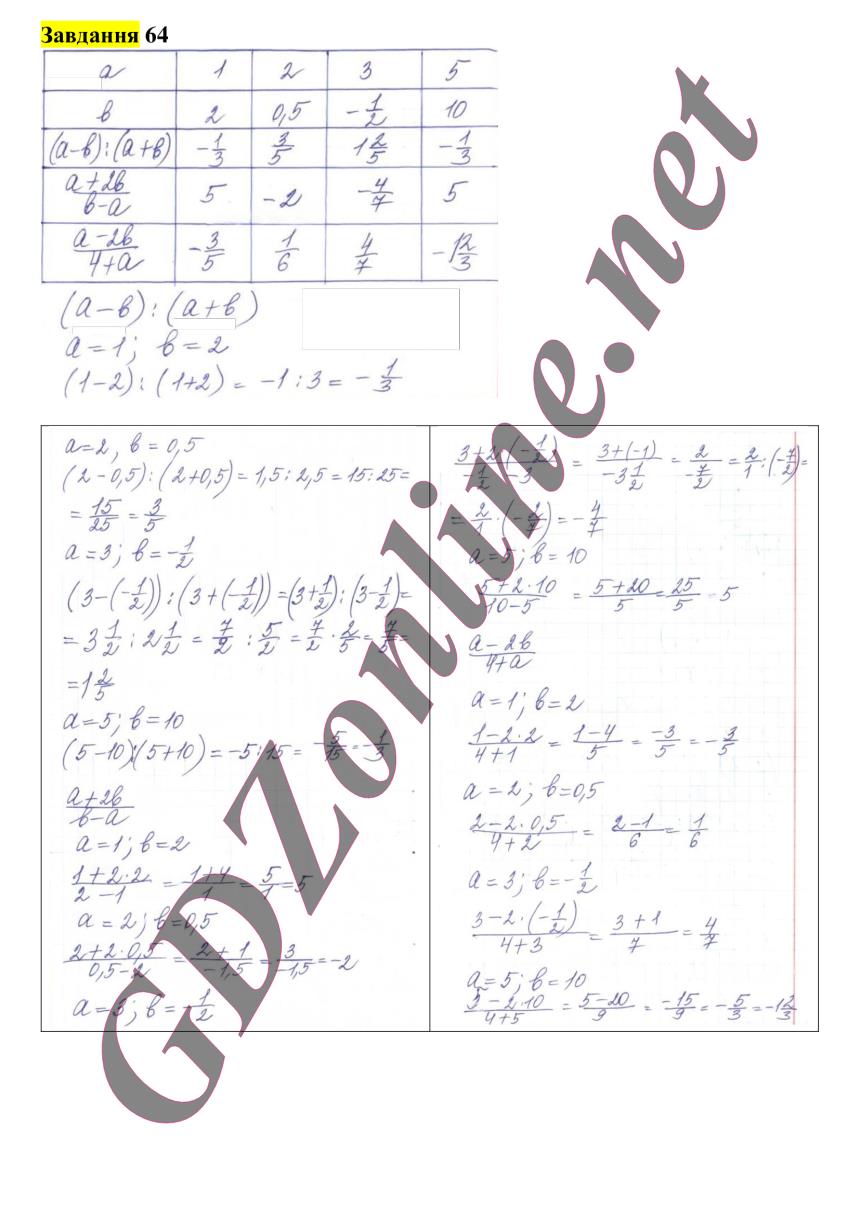 Завдання 64
а 1 2 3 5
в 2 0,5 -1/2 10
(а-в):(а+в) -1/3 3/5 1 2/5 -1/3
а+2в/в-а 5 -2 -4/7 5
а-2в/4+а -3/5 1/6 4/7 -1 2/3
(а-в):(а+в)
а=1; в=2
(1-2):(1+2)= -1:3= -1/3
а=2, в=0,5
(2-0,5):(2+0,5)=1,5:2,5=15:25=
=15/25=3/5
а=3; в=-1/2
(3-(-1/2)):(3+(-1/2))=(3+1/2):(3-1/2)=
=3 1/2:2 1/2=7/2:5/2=7/2·2/5=7/5=
=1 2/5
а=5; в=10
(5-10):(5+10)=-5:15= -5/15=-1/3
а+2в/в-а
а=1; в=2
1+2·2/2-1=1+4/1=5/1=5
а=2; в=0,5
2+2·0,5/0,5-2=2+1/-1,5=3/-1,5=-2
а=3; в=-1/2
3+2·(-1/2)/-1/2-3 = 3+(-1)/-3 1/2 = 2/-7/2 =2/1:(-7/2)=
=2/1·(-2/7)=-4/7
а=5; в=10
5+2·10/10-5 =5+20/5=25/5=5
а-2в/4+а
а=1; в=2
1-2·2/4+1=1-4/5=-3/5=-3/5
а=2; в=0,5
2-2·0,5/4+2= 2-1/6=1/6
а=3; в=-1/2
3-2·(-1/2)/4+3=3+1/7=4/7
а=5; в=10
5-2·10/4+5=5-20/9=-15/9=-5/3=-1 2/3
GDZonline.net